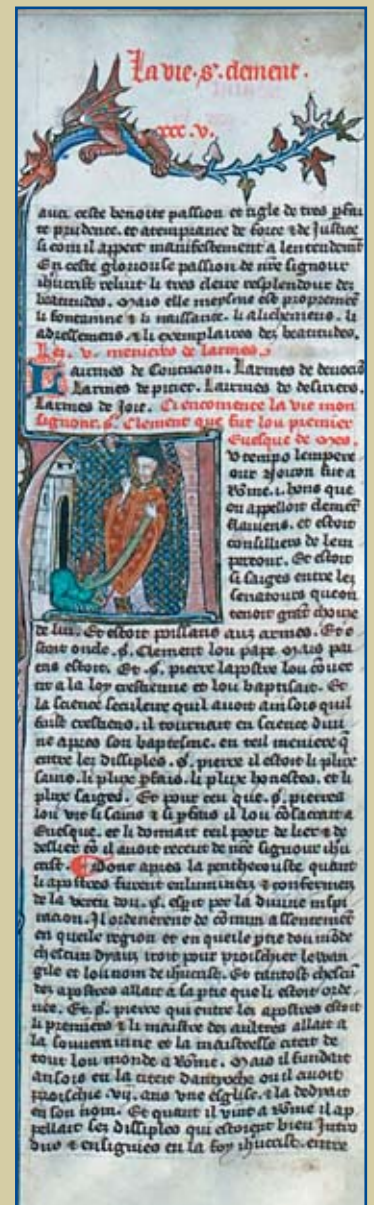 La vie .s. clement.
xxx. v.
auci ceste benoite passion et rigle de tres pfai
te prudence. et atemprance de force z de Justice
si com il appert manifestement a lentendemt
En ceste gloriouse passion de nrẽ signour
ihucrist reluit li tres cleire resplendour dez
beatitudes. Mais elle meysme est proppremẽt
li fontainne z li naissance. li
adressemens. z li exemplaires dez beatitudes.
v. menieres de larmes.
Larmes de Larmes de deuociõ
Larmes de pitiet. Larmes de desiriers.
Larmes de Joie. Ci encomence la vie mon
signour. s. Clement que fut lou premier
Euesque de Mes.
v temps lempere
our Noiron fut a
Rome. i. hons que
on appelloit clemẽt
flauiens. et estoit
consilliers de lem
perour. Et estoit
si saiges entre les
senatours que on
tenoit grãt
de lui. Et estoit poissans aux armes. Et e
stoit oncle .s. Clement lou pape Mais pai
ens estoit. Et .s. pierre lapostre lou cõuer
tit a la loy crestienne et lou baptisait. Et
la science seculeire quil auoit ainsois quil
fuist crestiens. il tournait en science diui
ne apres son baptesme. en teil meniere q̃
entre les disciples .s. pierre il estoit li plux
sains. li plux pfais. li plux honestes. et li
plux saiges. Et pour ceu que .s. pierres
lou vit si sains z si pfais il lou cõsacrait a
Euesque. et li donnait teil pooir de lier z de
deslier cõ il auoit receut de nrẽ signour ihu
crist. Dont apres la penthecouste quant
li apostres furent enlumineis z confermeis
de la vertu dou .s. esprit per la diuine inspi
racion. Il ordenerent de cõmun assentemẽt
en queile region et en queile ptie dou mõde
chescun dyaulz iroit pour proischier lewan
gile et lou nom de ihucrist. Et tantost chescũ
des apostres allait a la ptie que li estoit orde
nee. Et .s. pierre qui entre les apostres estoit
li premiers z li maistre des aultres allait a
la souuerainne et la maistresse citeit de
tout lou monde a Rome. Mais il fundait
ansois en la citeit dantioche ou il auoit
proischie .vij. ans vne esglise. z la dediait
en son nom. Et quant il vint a Rome il ap
pellait ses disciples qui estoient bien Intro
duis z ensigniés en la foy ihucrist. entre